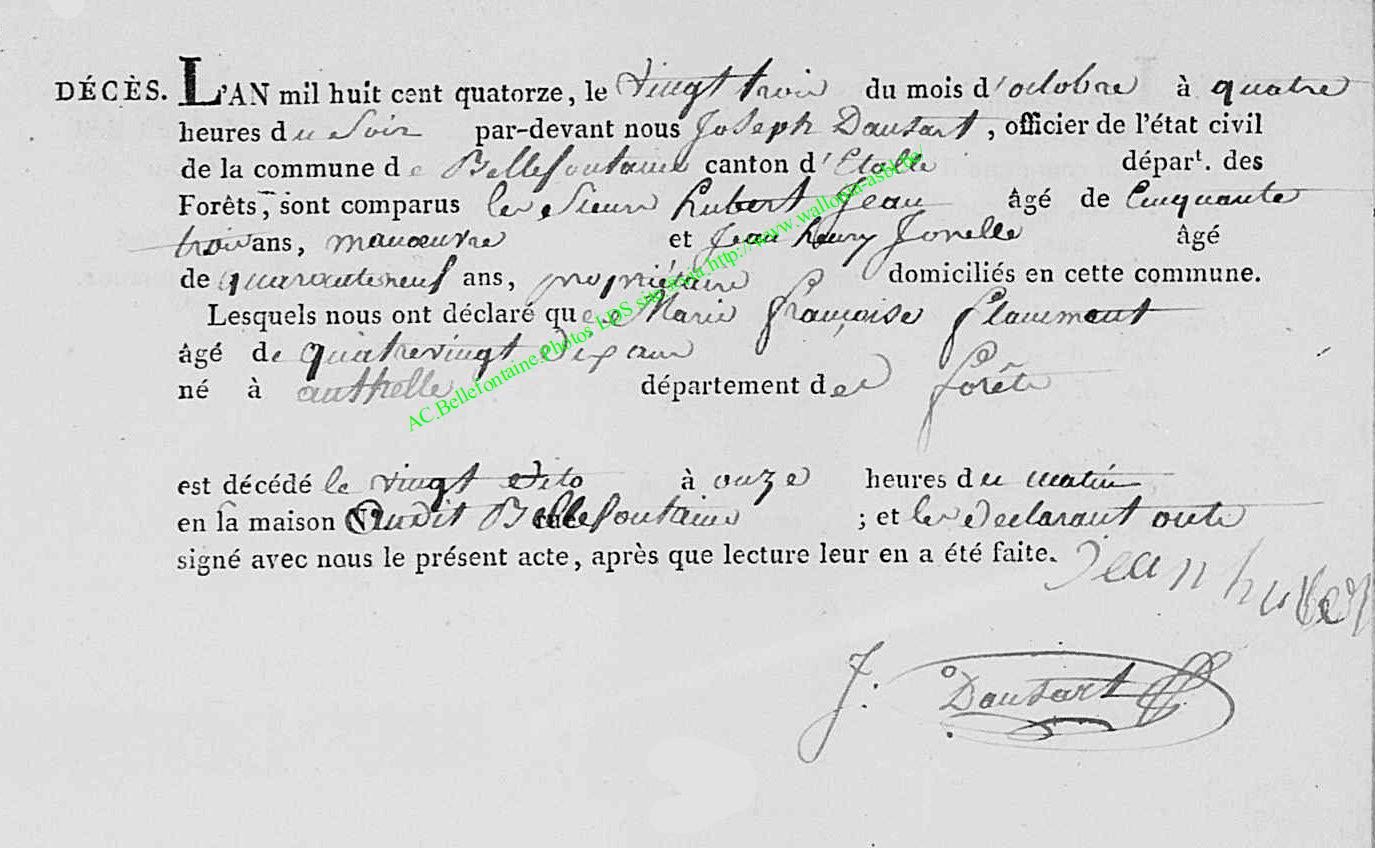 DÉCÈS. L'AN mil huit cent quatorze, le vingt trois du mois d'octobre à quatre
heures du Soir par-devant nous Joseph Dausart, officier de l'état civil
de la commune de Bellefontaine canton d'Etalle départ. des
Forêts, sont comparus les Sieurs hubert Jean âgé de Cinquante
trois ans, manoeuvre et Jean henry Jonelle âgé
de quarante neuf ans, propriétaire domiciliés en cette commune.
Lesquels nous ont déclaré que Marie françoise flammant
âgé de quatrevingt dix ans
né à authelle département des forêts
est décédé le vingt dito à onze heures du matin
en la maison audit Bellefontaine ; et les declarant ont
signé avec nous le présent acte, après que lecture leur en a été faite. Jean huber
J. Dausart
AC.Bellefontaine.Photos LDS site via http://www.wallonia-asbl.be/